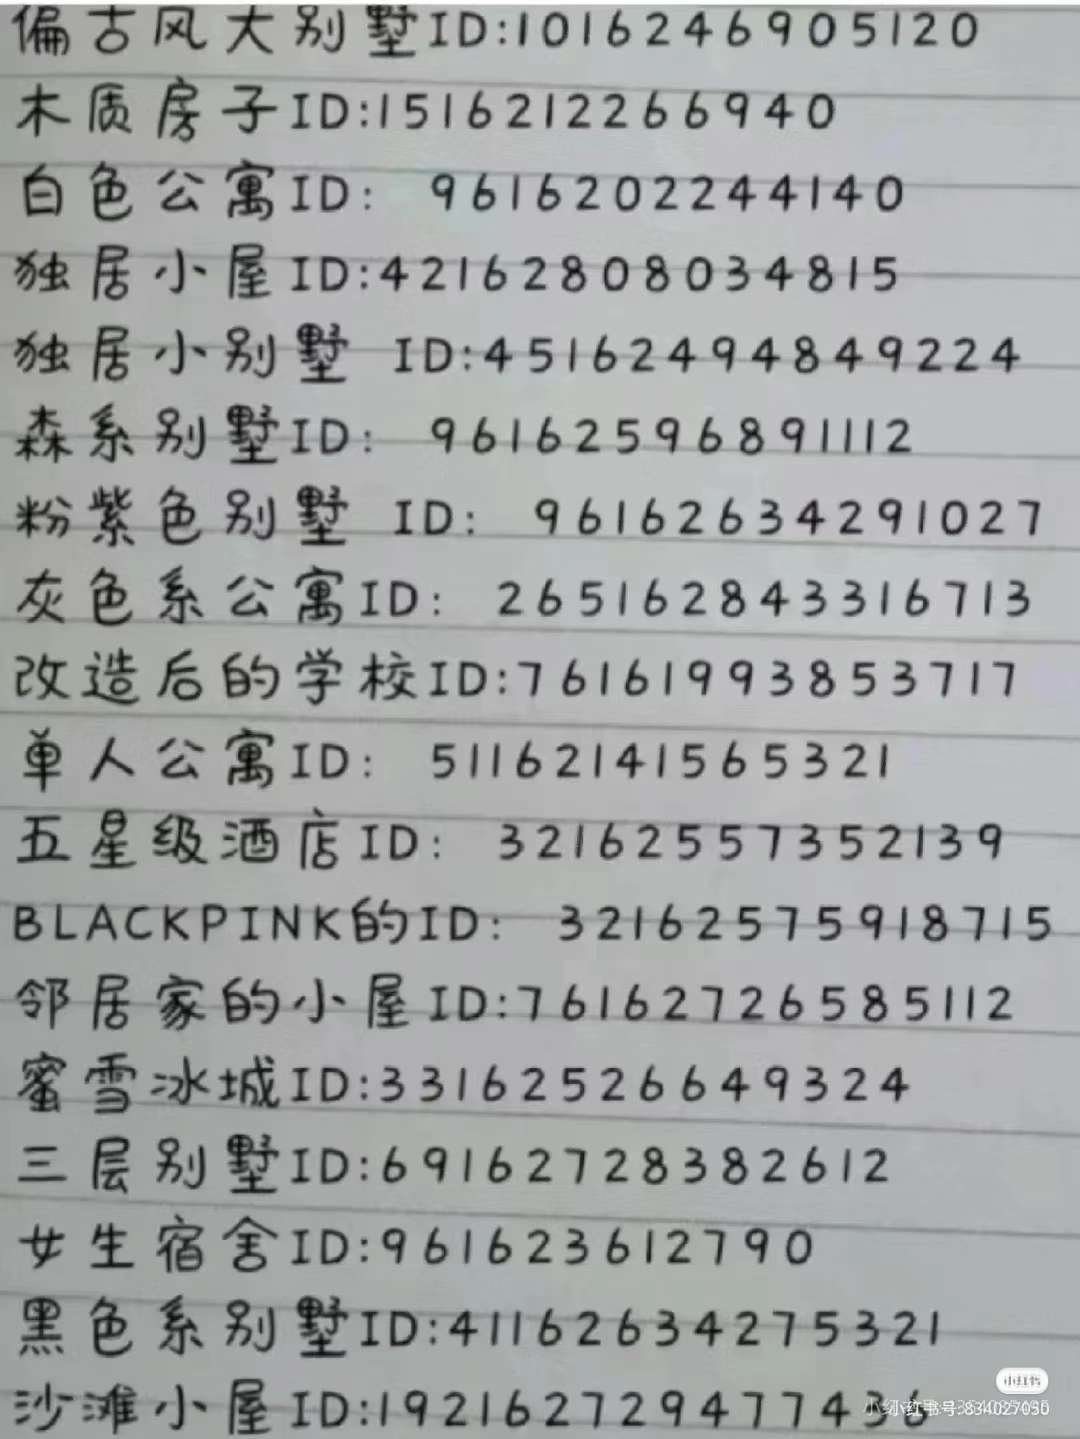 偏古风大别墅ID:1016246905120
木质房子ID:1516212266940
白色公寓ID: 9616202244140
独居小屋ID:42162808034815
独居小别墅 ID:45162494849224
森系别墅ID: 96162596891112
粉紫色别墅 ID: 96162634291027
灰色系公寓ID: 265162843316713
改造后的学校ID:76161993853717
单人公寓ID: 51162141565321
五星级酒店ID: 32162557352139
BLACKPINK的ID: 32162575918715
邻居家的小屋ID:76162726585112
蜜雪冰城ID:33162526649324
三层别墅ID:69162728382612
女生宿舍ID:961623612790
黑色系别墅ID:41162634275321
沙滩小屋ID:192162729477436
小红书
小红书号:834027030